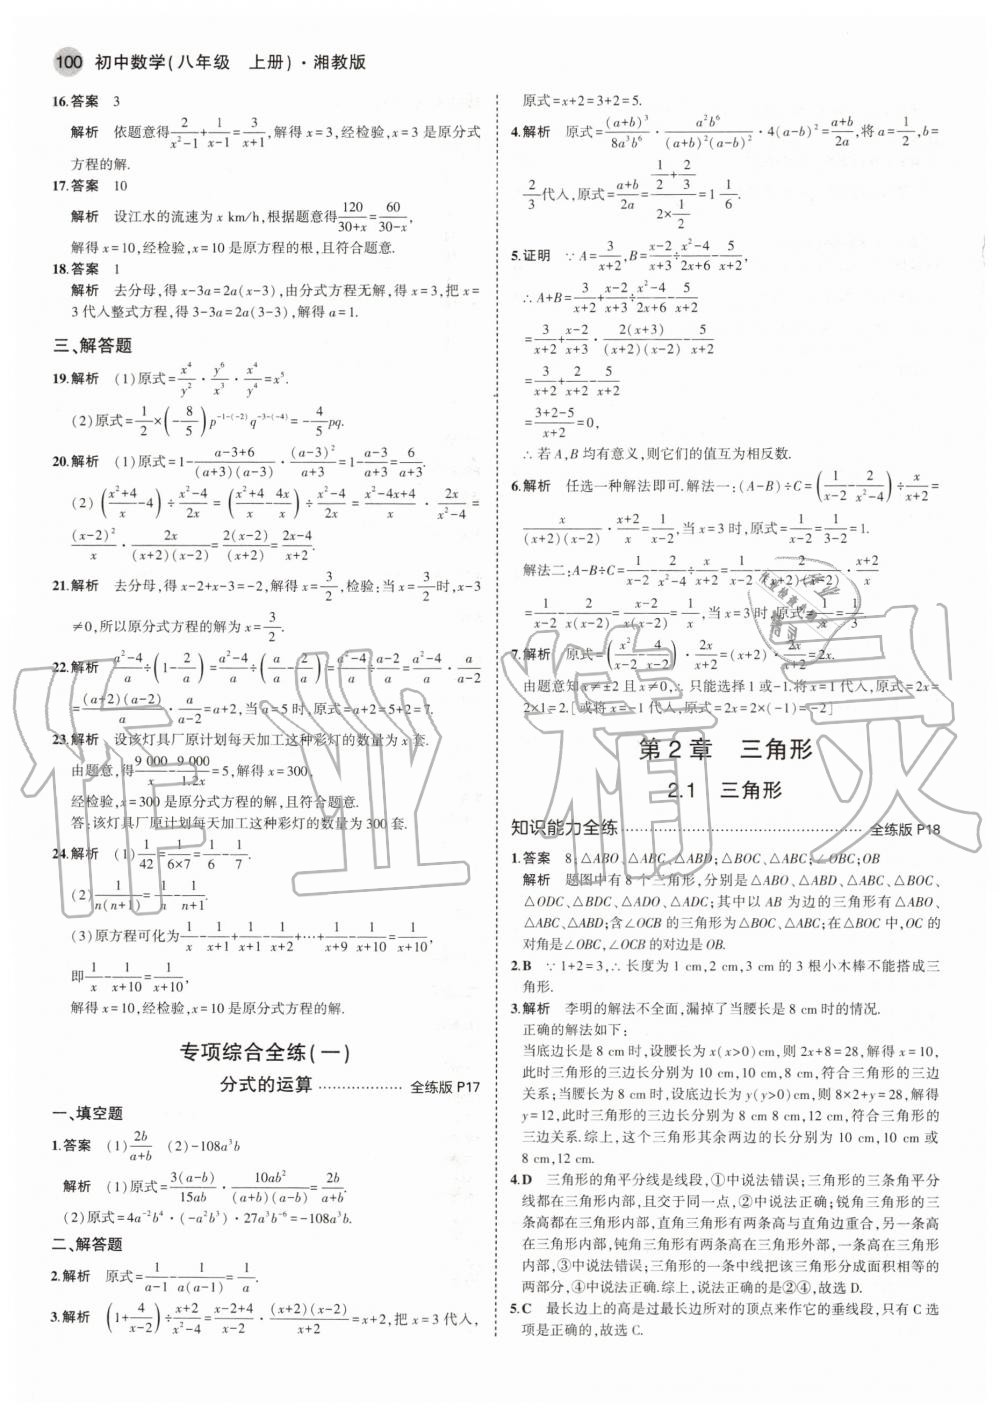 100 初中数学(八年级 上册)·湘教版
16.答案 3
解析 依题意得2/(x²-1)+1/(x-1)=3/(x+1),解得x=3,经检验,x=3是原分式
方程的解.
17.答案 10
解析 设江水的流速为x km/h,根据题意得120/(30+x)=60/(30-x),
解得x=10,经检验,x=10是原方程的根,且符合题意.
18.答案 1
解析 去分母,得x-3a=2a(x-3),由分式方程无解,得x=3,把x=
3代入整式方程,得3-3a=2a(3-3),解得a=1.
三、解答题
19.解析 (1)原式=x⁴/y²·y⁶/x³·x⁴/y⁴=x⁵.
(2)原式=1/2×(-8/5)p^(-1-(-2))q^(-3-(-4))=-4/5pq.
20.解析 (1)原式=1-(a-3+6)/((a+3)(a-3))·(a-3)²/(a+3)=1-(a-3)/(a+3)=6/(a+3).
(2)((x²+4)/x-4)÷(x²-4)/2x=((x²+4)/x-4x/x)÷(x²-4)/2x=(x²-4x+4)/x·2x/(x²-4)=
(x-2)²/x·2x/((x+2)(x-2))=2(x-2)/(x+2)=(2x-4)/(x+2).
21.解析 去分母,得x-2+x-3=-2,解得x=3/2,检验:当x=3/2时,x-3
≠0,所以原分式方程的解为x=3/2.
22.解析 (a²-4)/a÷(1-2/a)=(a²-4)/a÷(a/a-2/a)=(a²-4)/a÷(a-2)/a=(a²-4)/a·a/(a-2)
=(a+2)(a-2)/a·a/(a-2)=a+2,当a=5时,原式=a+2=5+2=7.
23.解析 设该灯具厂原计划每天加工这种彩灯的数量为x套.
由题意,得9 000/x-9 000/1.2x=5,解得x=300,
经检验,x=300是原分式方程的解,且符合题意.
答:该灯具厂原计划每天加工这种彩灯的数量为300套.
24.解析 (1)1/42=1/(6×7)=1/6-1/7.
(2)1/(n(n+1))=1/n-1/(n+1).
(3)原方程可化为1/x-1/(x+1)+1/(x+1)-1/(x+2)+…+1/(x+9)-1/(x+10)=1/(x+10),
即1/x-1/(x+10)=1/(x+10),
解得x=10,经检验,x=10是原分式方程的解.
专项综合全练(一)
分式的运算 ……………… 全练版P17
一、填空题
1.答案 (1)2b/(a+b) (2)-108a³b
解析 (1)原式=3(a-b)/15ab·10ab²/((a+b)(a-b))=2b/(a+b).
(2)原式=4a⁻²b⁴·(-a²b³)·27a³b⁻⁶=-108a³b.
二、解答题
2.解析 原式=1/(a-1)-1/(a(a-1))=1/a.
3.解析 (1+4/(x-2))÷(x+2)/(x²-4)=(x-2+4)/(x-2)·(x+2)(x-2)/(x+2)=x+2,把x=3代入,
原式=x+2=3+2=5.
4.解析 原式=(a+b)³/8a³b⁶·a²b⁶/((a+b)²(a-b)²)·4(a-b)²=(a+b)/2a,将a=1/2,b=
2/3代入,原式=(a+b)/2a=(1/2+2/3)/(2×1/2)=1 1/6.
5.证明 ∵A=3/(x+2),B=(x-2)/(x+3)÷(x²-4)/(2x+6)-5/(x+2),
∴A+B=3/(x+2)+(x-2)/(x+3)÷(x²-4)/(2x+6)-5/(x+2)
=3/(x+2)+(x-2)/(x+3)·2(x+3)/((x+2)(x-2))-5/(x+2)
=3/(x+2)+2/(x+2)-5/(x+2)
=(3+2-5)/(x+2)=0,
∴若A,B均有意义,则它们的值互为相反数.
6.解析 任选一种解法即可.解法一:(A-B)÷C=(1/(x-2)-2/(x²-4))÷x/(x+2)=
x/((x+2)(x-2))·(x+2)/x=1/(x-2),当x=3时,原式=1/(x-2)=1/(3-2)=1.
解法二:A-B÷C=1/(x-2)-2/(x²-4)÷x/(x+2)=1/(x-2)-2/((x+2)(x-2))·(x+2)/x
=1/(x-2)-2/(x(x-2))=(x-2)/(x(x-2))=1/x,当x=3时,原式=1/x=1/3.
7.解析 原式=(x²/(x-2)-4/(x-2))·2x/(x+2)=(x+2)·2x/(x+2)=2x,
由题意知x≠±2且x≠0,∴只能选择1或-1.将x=1代入,原式=2x=
2×1=2.[或将x=-1代入,原式=2x=2×(-1)=-2]
第2章 三角形
2.1 三角形
知识能力全练 ……………… 全练版P18
1.答案 8;△ABO、△ABC、△ABD;△BOC、△ABC;∠OBC;OB
解析 题图中有8个三角形,分别是△ABO、△ABD、△ABC、△BOC、
△ODC、△BDC、△ADO、△ADC;其中以AB为边的三角形有△ABO、
△ABC、△ABD;含∠OCB的三角形为△BOC、△ABC;在△BOC中,OC的
对角是∠OBC,∠OCB的对边是OB.
2.B ∵1+2=3,∴长度为1 cm,2 cm,3 cm的3根小木棒不能搭成三
角形.
3.解析 李明的解法不全面,漏掉了当腰长是8 cm时的情况.
正确的解法如下:
当底边长是8 cm时,设腰长为x(x>0)cm,则2x+8=28,解得x=10,
此时三角形的三边长分别为10 cm,10 cm,8 cm,符合三角形的三边
关系;当腰长为8 cm时,设底边长为y(y>0)cm,则8×2+y=28,解得
y=12,此时三角形的三边长分别为8 cm 8 cm,12 cm,符合三角形的
三边关系.综上,这个三角形其余两边的长分别为10 cm,10 cm或
8 cm,12 cm.
4.D 三角形的角平分线是线段,①中说法错误;三角形的三条角平分
线都在三角形内部,且交于同一点,②中说法正确;锐角三角形的三
条高都在三角形内部,直角三角形有两条高与直角边重合,另一条高
在三角形内部,钝角三角形有两条高在三角形外部,一条高在三角形
内部,③中说法错误;三角形的一条中线把该三角形分成面积相等的
两部分,④中说法正确.综上,说法正确的是②④,故选D.
5.C 最长边上的高是过最长边所对的顶点来作它的垂线段,只有C选
项是正确的,故选C.
作业精灵